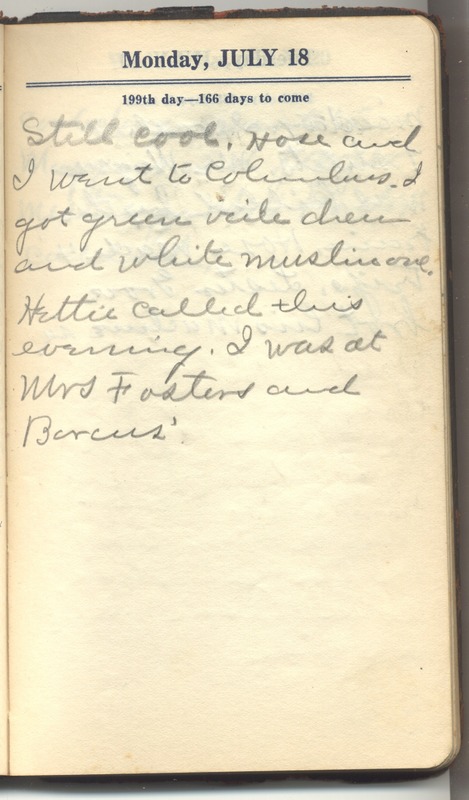 Monday, JULY 18
199th day—166 days to come
Still cool. Hose and
I went to Columbus. I
got green voile dress
and white muslin one.
Hettie called this
evening. I was at
Mrs Fosters and
Barcus'.